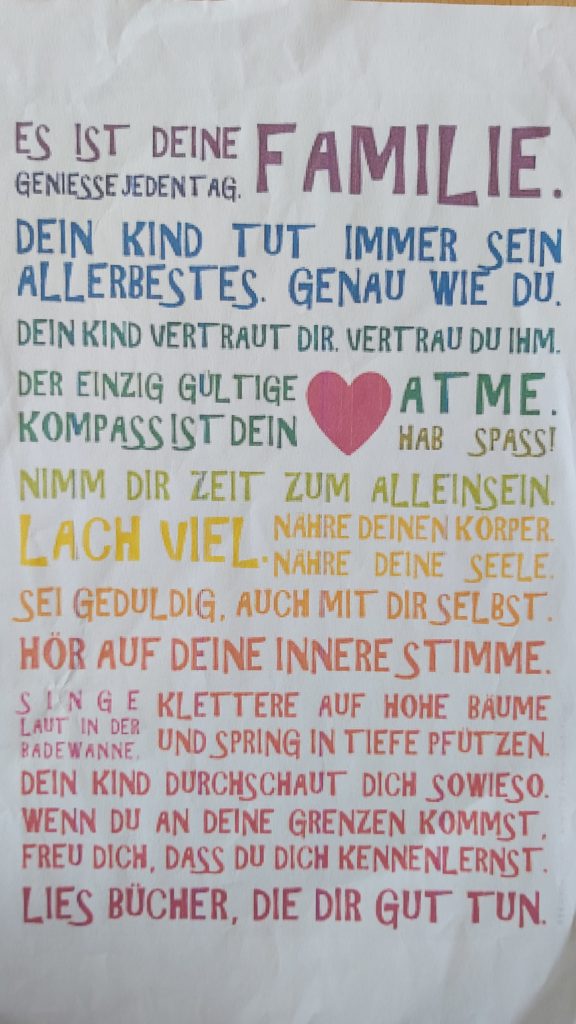 ES IST DEINE FAMILIE.
GENIESSE JEDEN TAG.
DEIN KIND TUT IMMER SEIN
ALLERBESTES. GENAU WIE DU.
DEIN KIND VERTRAUT DIR. VERTRAU DU IHM.
DER EINZIG GÜLTIGE
KOMPASS IST DEIN
ATME.
HAB SPASS!
NIMM DIR ZEIT ZUM ALLEINSEIN.
LACH VIEL.
NÄHRE DEINEN KÖRPER.
NÄHRE DEINE SEELE.
SEI GEDULDIG, AUCH MIT DIR SELBST.
HÖR AUF DEINE INNERE STIMME.
SINGE
LAUT IN DER
BADEWANNE.
KLETTERE AUF HOHE BÄUME
UND SPRING IN TIEFE PFÜTZEN.
DEIN KIND DURCHSCHAUT DICH SOWIESO.
WENN DU AN DEINE GRENZEN KOMMST,
FREU DICH, DASS DU DICH KENNENLERNST.
LIES BÜCHER, DIE DIR GUT TUN.